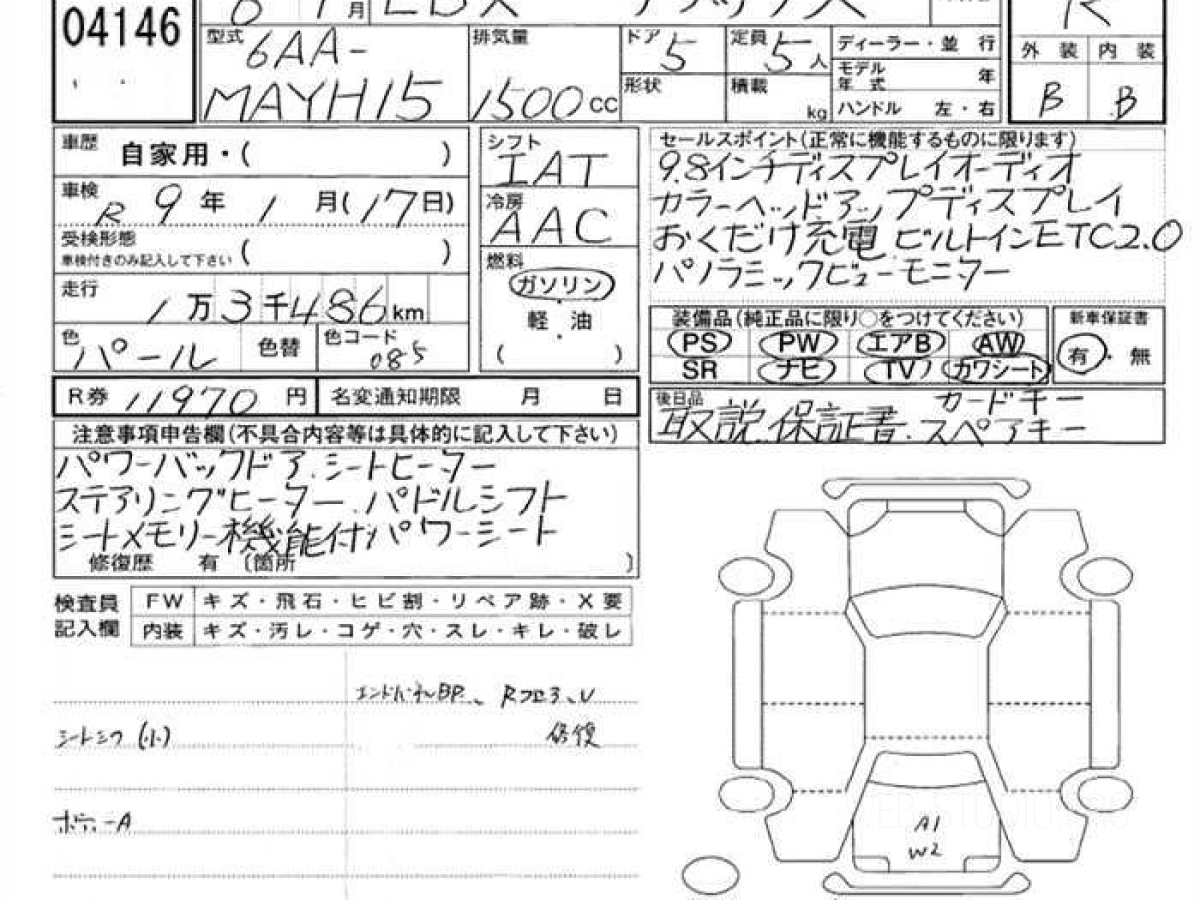 04146
月
型式 6AA-
MAYH15
排気量
1500 CC
ドア 5
定員 5 人
形状
積載 kg
ディーラー・並 行
モデル年式 年
ハンドル 左・右
R
外 装 内 装
B B
車歴 自家用・( )
車検 R 9 年 1 月(17日)
受検形態
車検付きのみ記入して下さい ( )
走行 1 万 3 千 486 km
色 パール 色替 色コード 085
シフト IAT
冷房 AAC
燃料
ガソリン
軽・油
( )
セールスポイント(正常に機能するものに限ります)
9.8インチディスプレイオーディオ
カラーヘッドアップディスプレイ
おくだけ充電 ビルトインETC2.0
パノラミックビューモニター
装備品(純正品に限り○をつけてください)
PS PW エアB AW
SR ナビ TV カワシート
新車保証書
有・無
R券 11970 円 名変通知期限 月 日
後日品 カードキー
取説.保証書.スペアキー
注意事項申告欄(不具合内容等は具体的に記入して下さい)
パワーバックドア.シートヒーター
ステアリングヒーター.パドルシフト
シートメモリー機能付パワーシート
修復歴 有 〔箇所 〕
検査員
記入欄
FW キズ・飛石・ヒビ割・リペア跡・X要
内装 キズ・汚レ・コゲ・穴・スレ・キレ・破レ
エンドパネルBP、Rフロ3、U
修復
シートシワ(小)
ボディーA
A1
W2